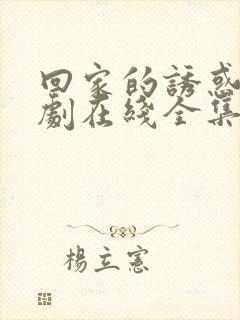 回家的誘惑
劇在綫全集
楊立憲